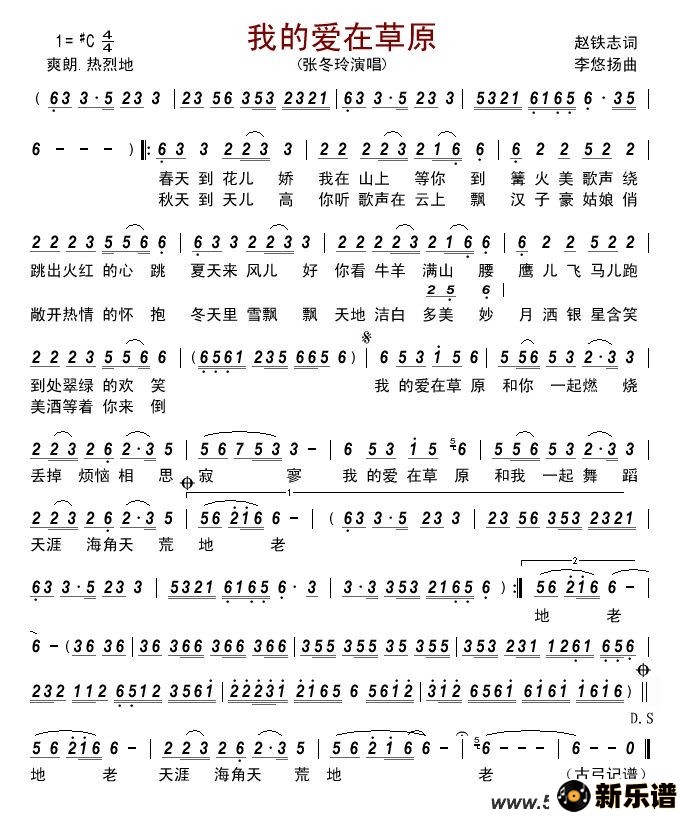 我的爱在草原
1= #C 4/4
赵铁志词
爽朗.热烈地
(张冬玲演唱)
李悠扬曲
( 63 3·5 23 3 | 23 56 353 2321 | 63 3·5 23 3 | 5321 6165 6· 35 |
6 - - - ) ‖: 6 3 3 2 2 3 3 | 2 2 2 2 3 2 1 6 6 | 6 2 2 5 2 2 |
春天 到 花儿 娇 我在 山上 等你 到 篝 火 美 歌声 绕
秋天 到 天儿 高 你听 歌声在 云上 飘 汉 子 豪 姑娘 俏
2 2 2 3 5 5 6 6 | 6 3 3 2 2 3 3 | 2 2 2 2 3 2 1 6 6 | 6 2 2 5 2 2 |
跳出火红 的心 跳 夏天来 风儿 好 你看 牛羊 满山 腰 鹰 儿 飞 马儿跑
2 5 6
敞开热情 的怀 抱 冬天里 雪飘 飘 天地 洁白 多美 妙 月 洒 银 星含笑
2 2 2 3 5 5 6 6 | (6561 235 665 6) | 6 53 1 5 6 | 5 56 53 2·3 3 |
到处翠绿 的欢 笑 我 的爱在草 原 和你 一起燃 烧
美酒等着 你来 倒
2 23 2 6 2·3 5 | 5 6 7 5 3 3 - | 6 53 1 5 5 6 | 5 56 53 2·3 3 |
丢掉 烦恼 相 思 寂 寥 我 的爱 在草 原 和我 一起 舞 蹈
1
2 23 2 6 2·3 5 | 56 216 6 - | (63 3·5 23 3 | 23 56 353 2321 |
天涯 海角天 荒 地 老
2
63 3·5 23 3 | 5321 6165 6· 3 | 3 3·5 23 3 | 2321 2165 6 - ) :‖ 56 216 6 - |
地 老
6 - (36 36 | 36 366 366 366 | 355 355 35 355 | 353 231 1261 656 |
232 112 6512 3561 | 22231 2161 2 2 | 312 6561 6161 1616 ) ‖
D.S
5 6 2 1 6 6 - | 2 23 2 6 2·3 5 | 5 6 2 1 6 6 - | 6 - - - | 6 - - 0 ‖
地 老 天涯 海角天 荒 地 老 (古弓记谱)
www.5
新乐谱